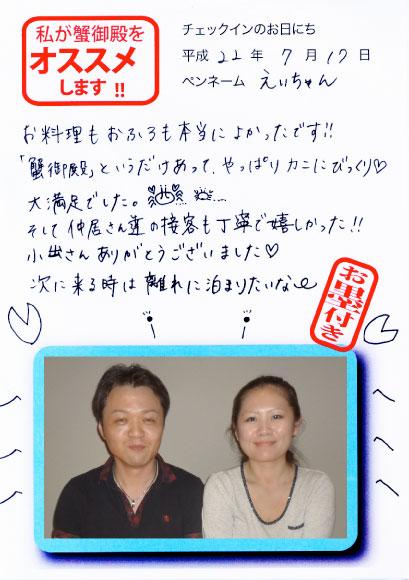 私が蟹御殿を
オススメ
します !!
チェックインのお日にち
平成 22 年 7 月 17 日
ペンネーム えいちゃん
お料理もおふろも本当によかったです!!
「蟹御殿」というだけあって、やっぱりカニにびっくり♡
大満足でした。
そして仲居さん達の接客も丁寧で嬉しかった!!
小出さんありがとうございました♡
次に来る時は離れに泊まりたいな〜
お墨付き